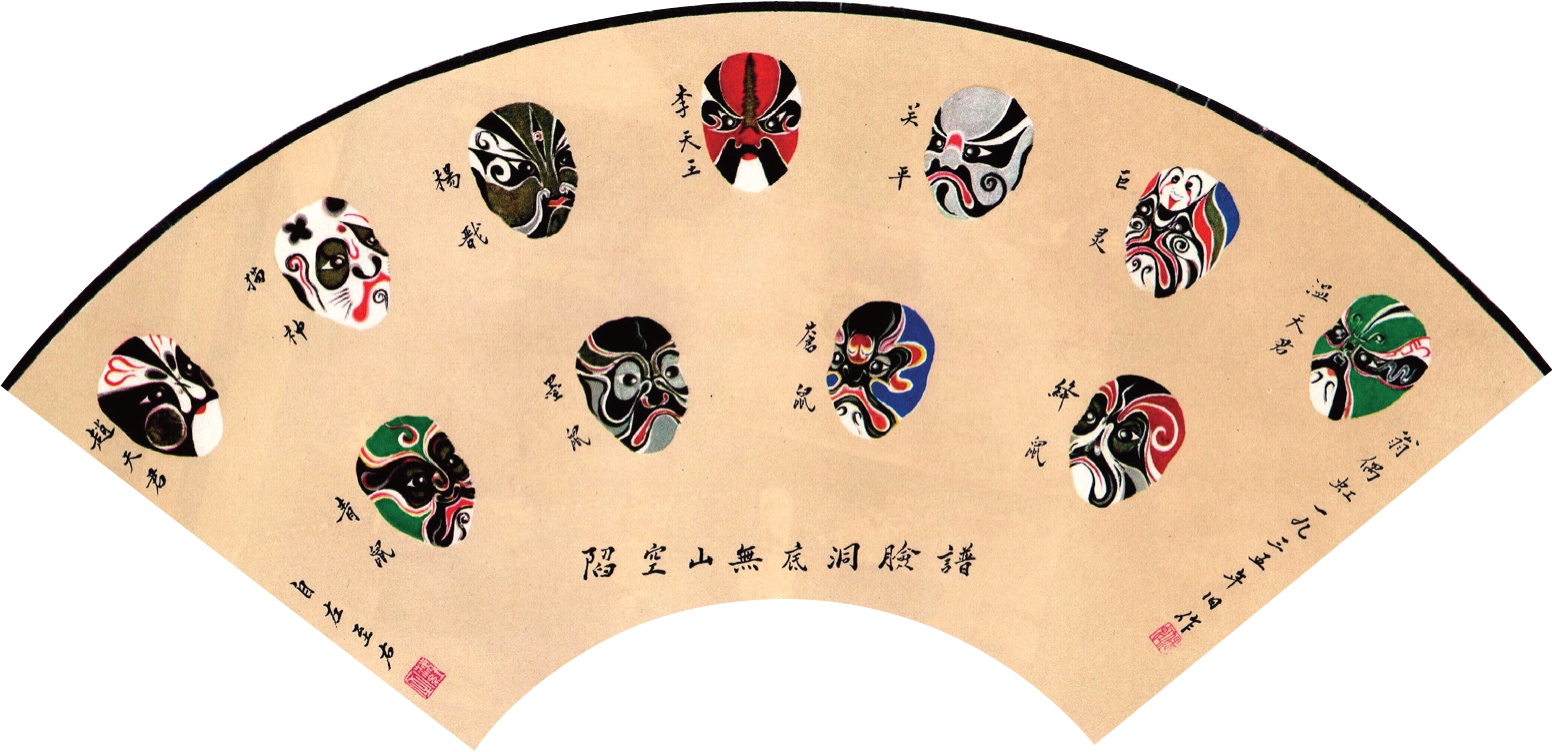 趙天君
猫神
楊戩
李天王
关平
巨灵
温天君
青鼠
墨鼠
蒼鼠
絳鼠
陷空山無底洞臉譜
自左至右
翁偶虹一九三五年旧作